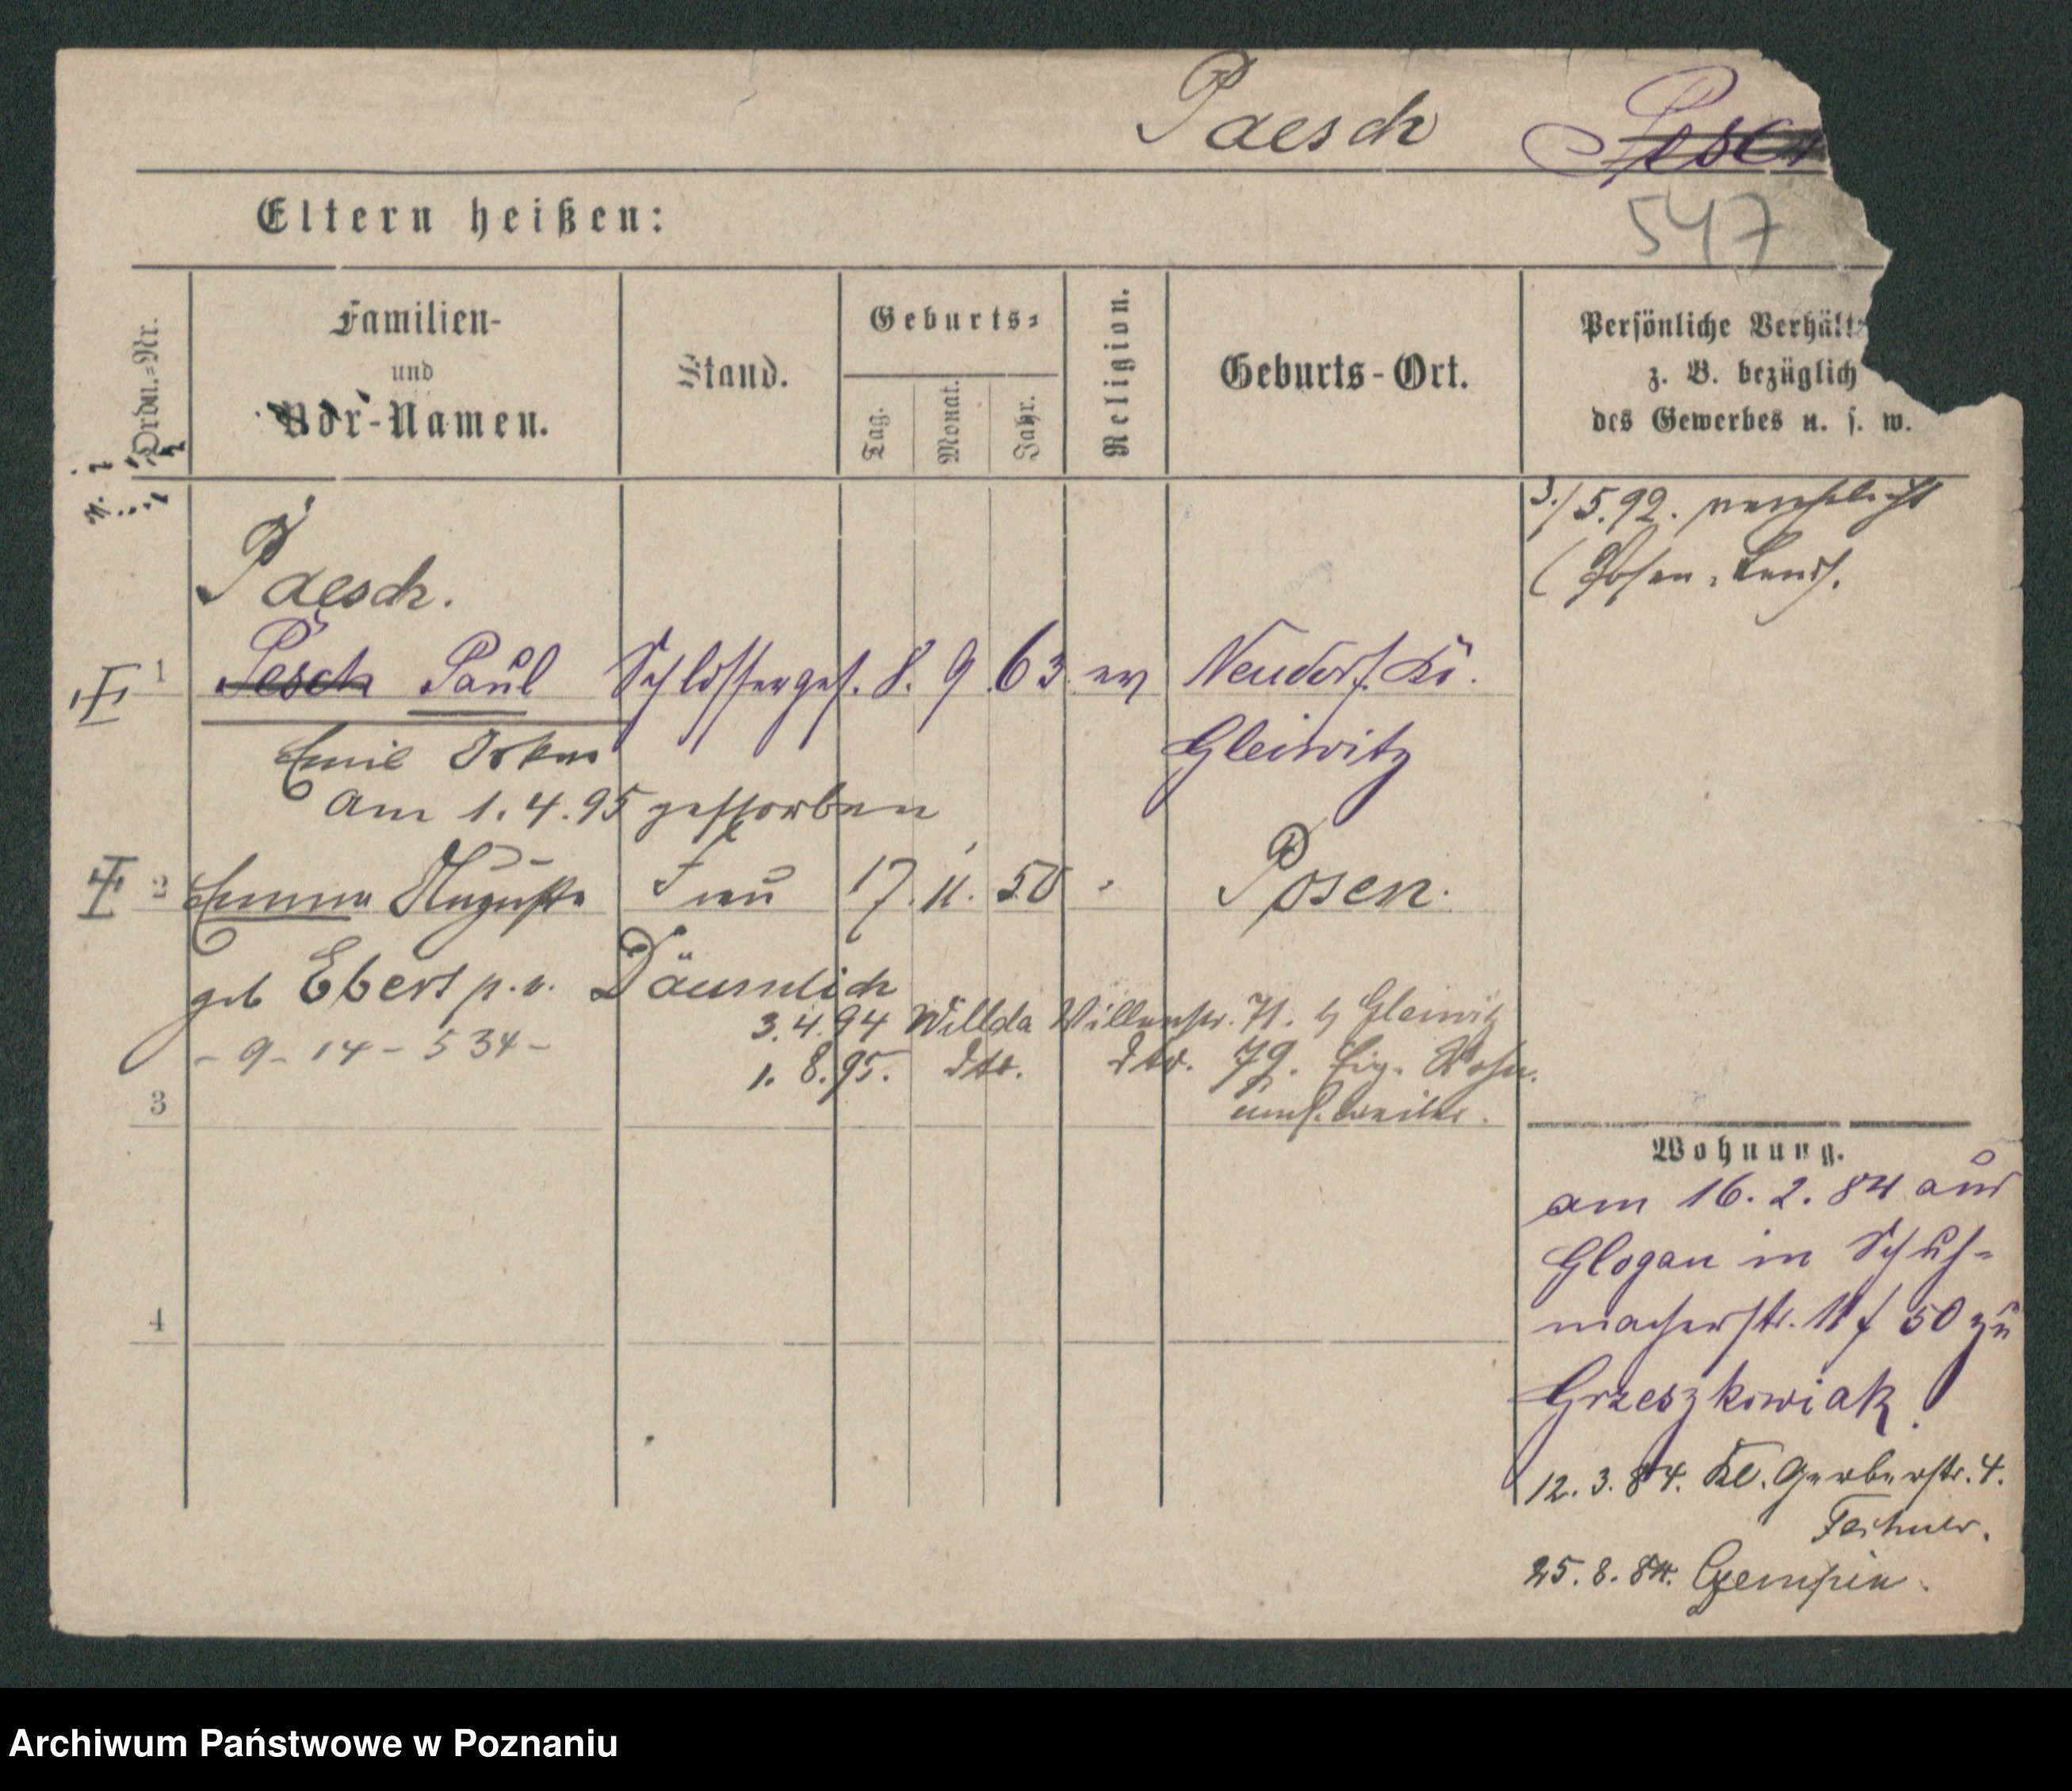 Paesch Pesch
547
Eltern heißen:
Ordn.-Nr.
Familien-
und
Vor-Namen.
Stand.
Geburts-
Tag.
Monat.
Jahr.
Religion.
Geburts-Ort.
Persönliche Verhält
z. B. bezüglich
des Gewerbes u. s. w.
3./5.92. verehelicht
(Posen, Landk.
Paesch.
1 Pesch Paul Schlosserges. 8. 9. 63 ev Neudorf. Kr.
Gleiwitz
Emil Oskar
am 1.4.95 gestorben
2 Emma Auguste Frau 17. 11. 50 Posen.
geb Ebert p.v. Däumlich
3.4.94 Wilda Villenstr. 71. Gleiwitz
- 9 - 14 - 534 -
1. 8.95. dto. dto. 79. Eig. Wohn.
3
Wohnung.
am 16. 2. 84 aus
Glogau in Schuh-
macherstr. 11 f 50 zu
4
Grzeszkowiak.
12. 3. 84. Kl. Gerberstr. 4.
Fechner.
25. 8. 84. Gempin.
Archiwum Państwowe w Poznaniu